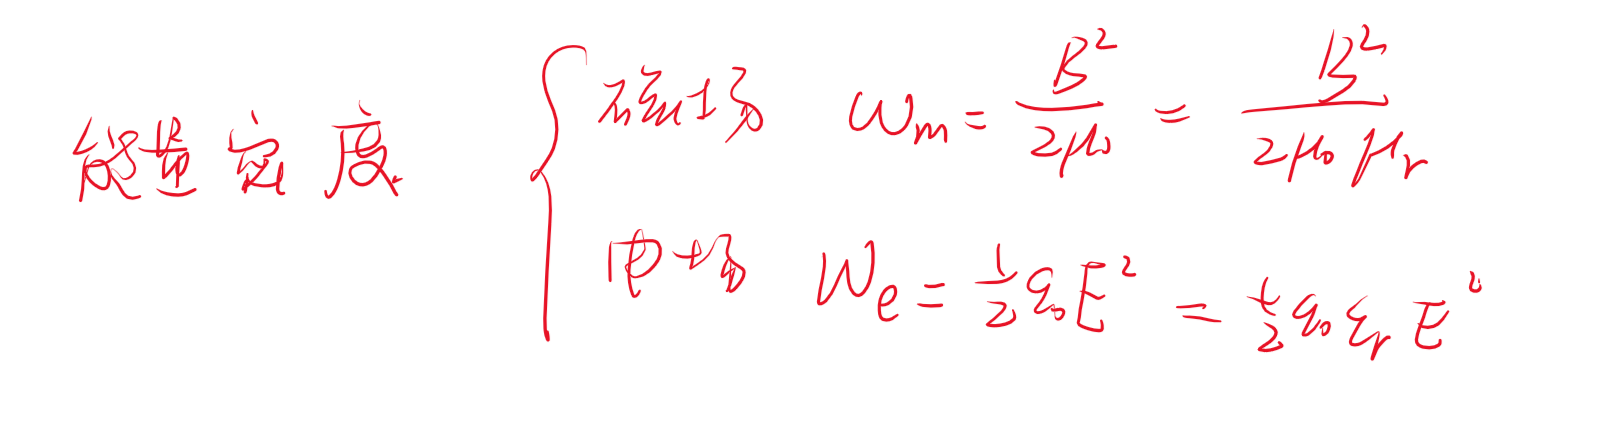 能量密度
磁场 ωm = B²/2μ₀ = B²/2μ₀μr
电场 We = 1/2 ε₀E² = 1/2 ε₀εrE²